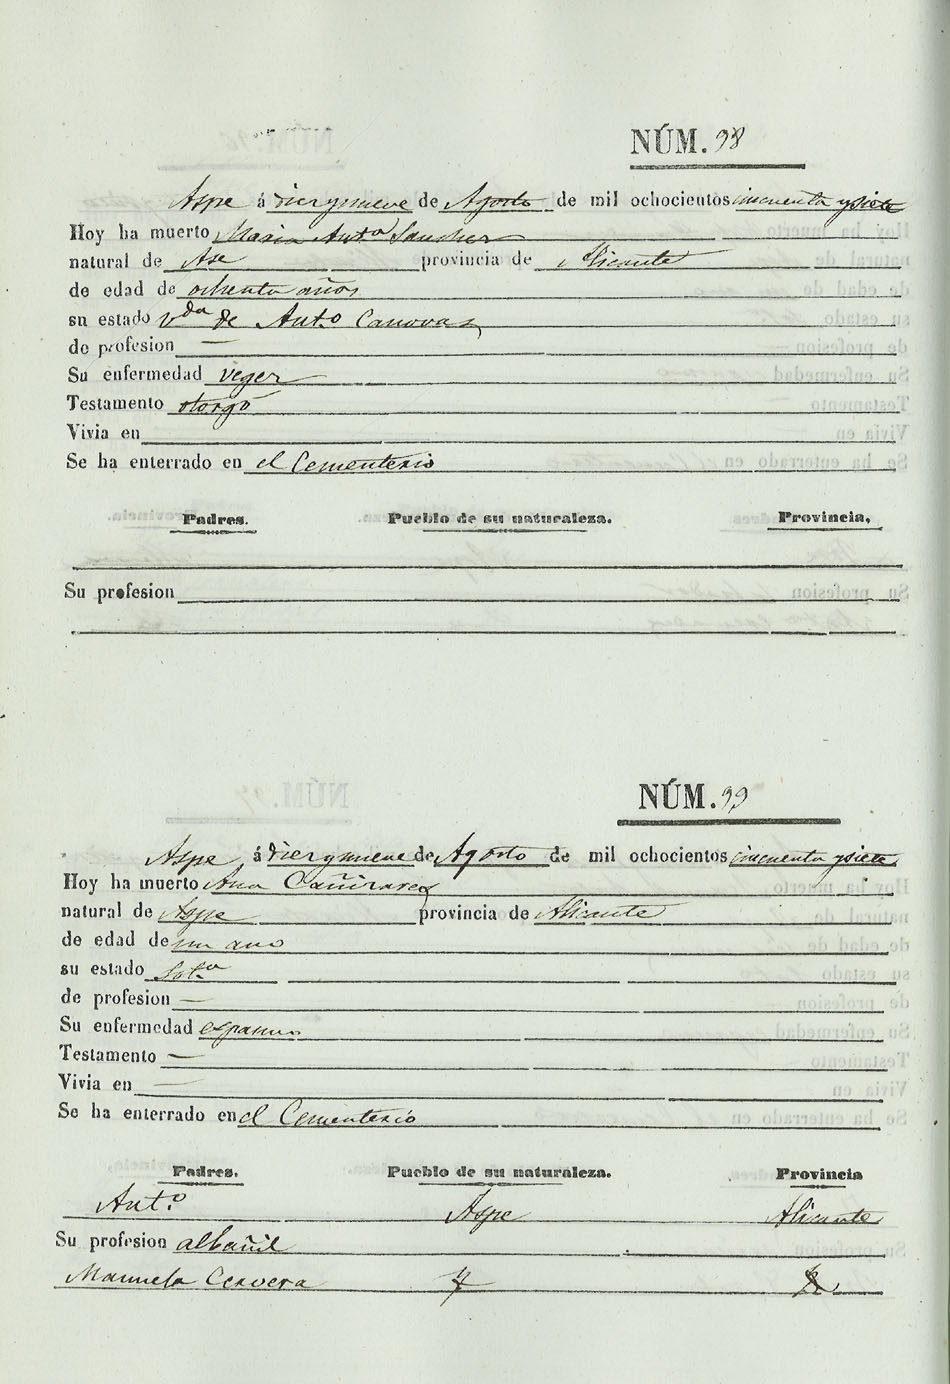 NÚM. 98
Aspe á diez y nueve de Agosto de mil ochocientos cincuenta y siete
Hoy ha muerto Maria Ant.a Sanchez
natural de Ase provincia de Alicante
de edad de ochenta años
su estado V.da de Ant.o Canovas
de profesion —
Su enfermedad vegez
Testamento otorgó
Vivia en
Se ha enterrado en el Cementerio
Padres. Pueblo de su naturaleza. Provincia.
Su profesion
NÚM. 99
Aspe á diez y nueve de Agosto de mil ochocientos cincuenta y siete
Hoy ha muerto Ana Cañizares
natural de Aspe provincia de Alicante
de edad de un ano
su estado Solt.a
de profesion —
Su enfermedad espasmo
Testamento —
Vivia en —
Se ha enterrado en el Cementerio
Padres. Pueblo de su naturaleza. Provincia
Ant.o Aspe Alicante
Su profesion albañil
Manuela Cervera